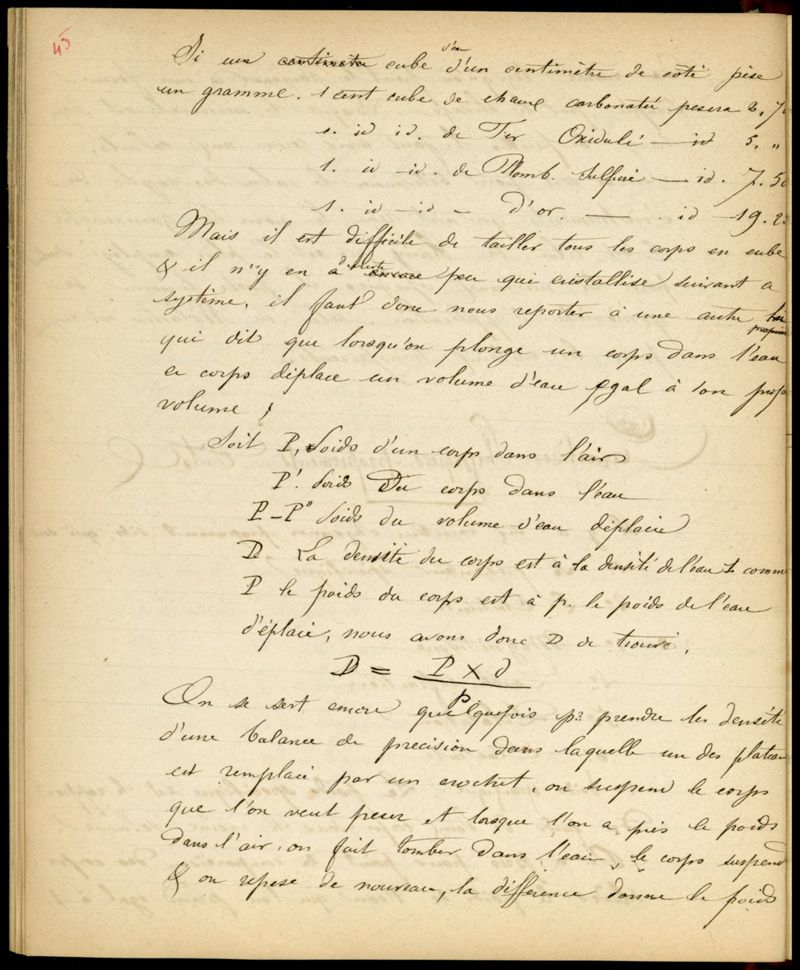 45
Si un centimetre cube d'eau d'un centimètre de coté pèse
un gramme. 1 cent cube de chaux carbonatée pesera 2,7
1. id id. de Fer Oxidulé — id 5. "
1. id — id. de Plomb. Sulfuré — id. 7.50
1. id — id — d'or. — . id — 19.2
Mais il est difficile de tailler tous les corps en cube
& il n'y en a peu qui cristallise suivant ce
système, il faut donc nous reporter à une autre loi
qui dit que lorsqu'on plonge un corps dans l'eau
ce corps déplace un volume d'eau égal à son propre
volume ;
Soit P, Poids d'un corps dans l'air
P' Poids Du corps dans l'eau
P — P" Poids du volume d'eau déplacée
D La densité du corps est à la densité de l'eau 1 comme
P le poids du corps est à p. le poids de l'eau
d'éplacé, nous avons donc D de trouvé.
D = P × d
p
On se sert encore quelquefois pr prendre les densités
d'une balance de precision dans laquelle un des plateau
est remplacé par un crochet, on suspend le corps
que l'on veut peser et lorsque l'on a pris le poids
dans l'air, on fait tomber dans l'eau, le corps suspend
& on repese de nouveau, la différence donne le poids